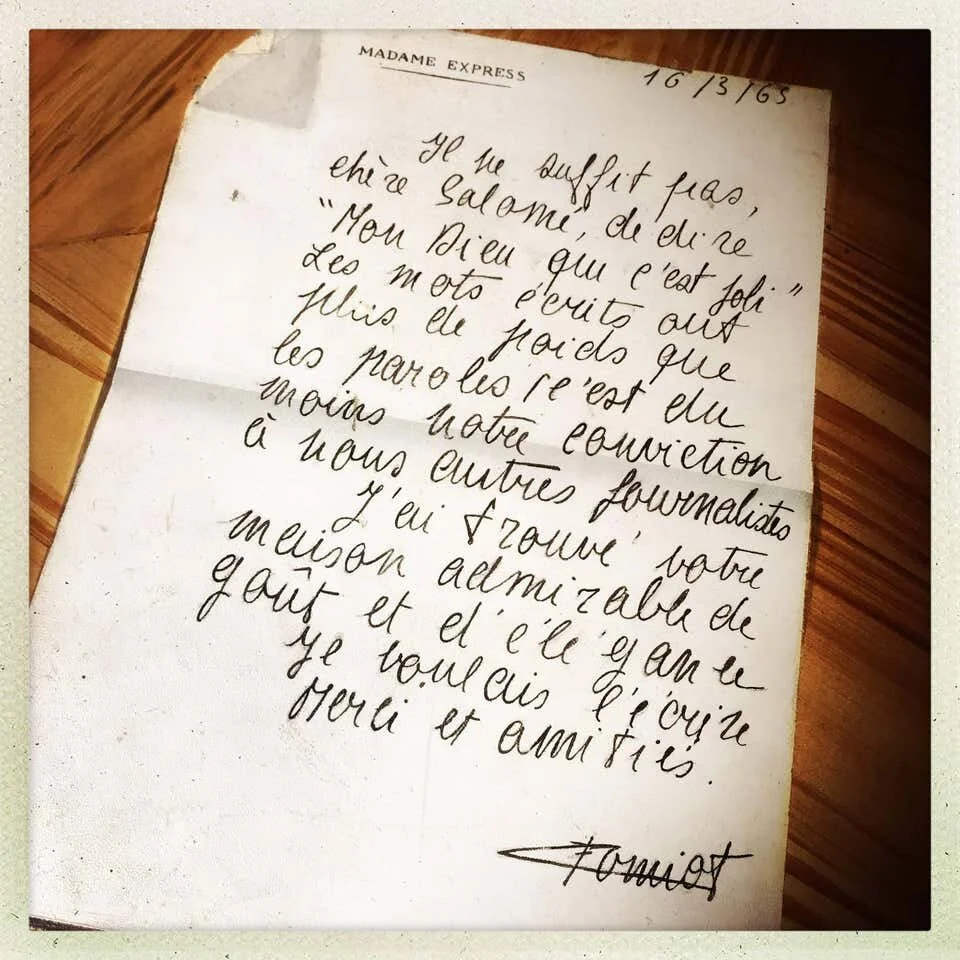 MADAME EXPRESS
16/3/65
Il ne suffit pas,
chère Salomé, de dire
"Mon Dieu que c'est joli"
Les mots écrits ont
plus de poids que
les paroles (c'est du
moins notre conviction
à nous autres journalistes
J'ai trouvé votre
maison admirable de
goût et d'élégance
Je voulais l'écrire
Merci et amitiés.